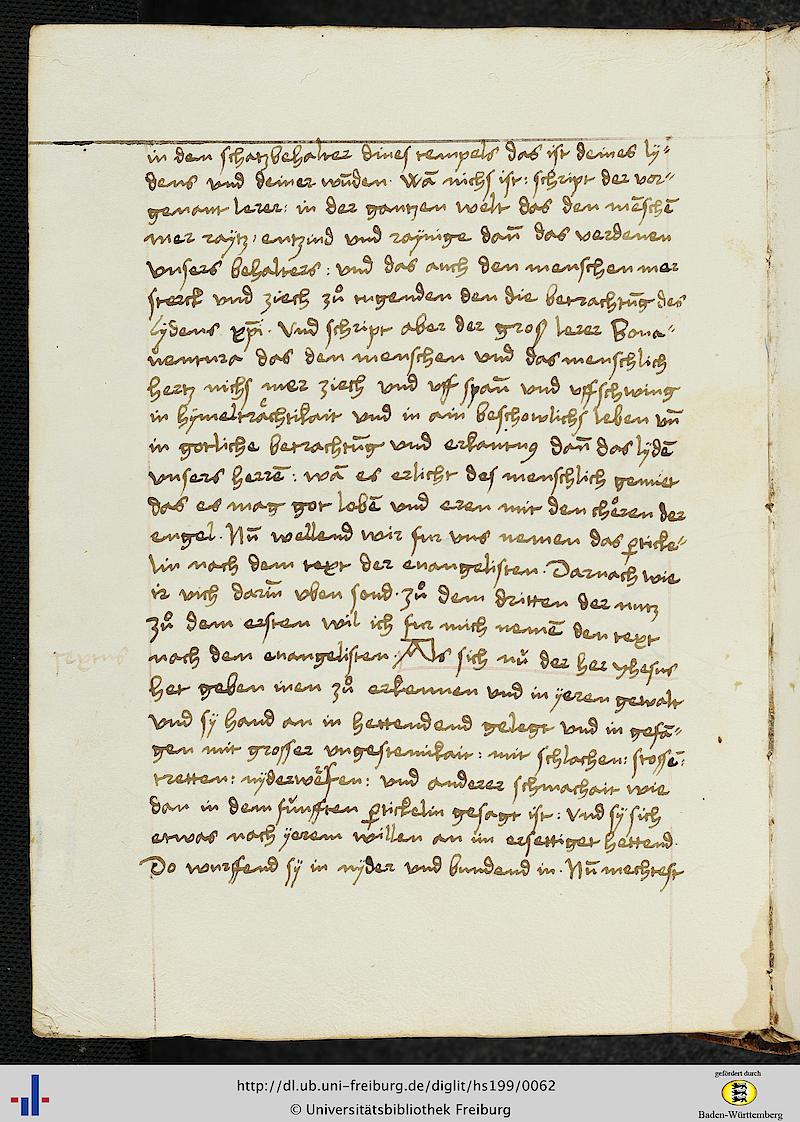 in den schatzbehalter dines tempels das ist deines ly⸗
dens vnd deiner wu̅den. Wa̅ nichs ist: schript der vor⸗
genant lerer: in der gantzen welt das den me̅sche̅
mer raytz, entzind vnd raynige dan̅ das verdenen
vnsers behalters: vnd das auch den menschen mer
sterck vnd ziech zů tugenden den die betrachtu̅g des
lydens xp̅i. Vnd schript aber der groß lerer Bona⸗
uentura das den menschen vnd das menschlich
hertz nichs mer ziech vnd vff span̅ vnd vffschwing
in hymelträchtikait vnd in ain beschowlichs leben vn̅
in gotliche betrachtu̅g vnd erkantnus dan̅ das lyde̅
vnsers herre̅: wa̅ es erlicht des menschlich gemiet
das es mag got lobe̅ vnd eren mit den chören der
engel. Nu̅ wellend wir fur vns nemen das p̲ticke⸗
lin nach dem text der euangelisten. Darnach wie
ir vich darin̅ vben sond. zů dem dritten der nutz
zů dem ersten wil ich fur mich neme̅ den text
textus
nach dem euangelisten. Als sich nu̅ der her yhesus
het geben inen zů erkennen vnd in yeren gewalt
vnd sy hand an in hettendend gelegt vnd in gefa̅⸗
gen mit grosser vngestemikait: mit schlachen: stosse̅:
tretten: nyderwerfen: vnd anderer schmachait wie
dan in dem fünfften p̲tickelin gesagt ist: vnd sy sich
etwas nach yerem willen an im ersettiget hettend.
Do wurffend sy in nyder vnd bundend in. Nu̅ mechtest
http://dl.ub.uni-freiburg.de/diglit/hs199/0062
© Universitätsbibliothek Freiburg
gefördert durch
Baden-Württemberg